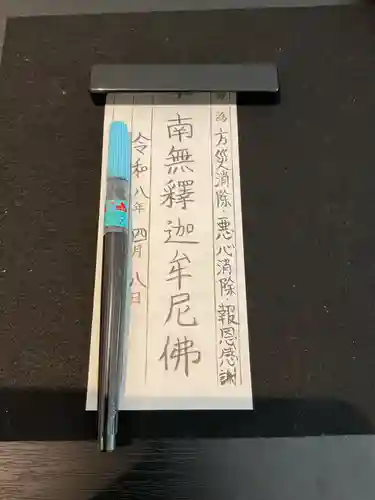 為 方災消除・悪心消除・報恩感謝
南無釋迦牟尼佛
令和八年 四月八日